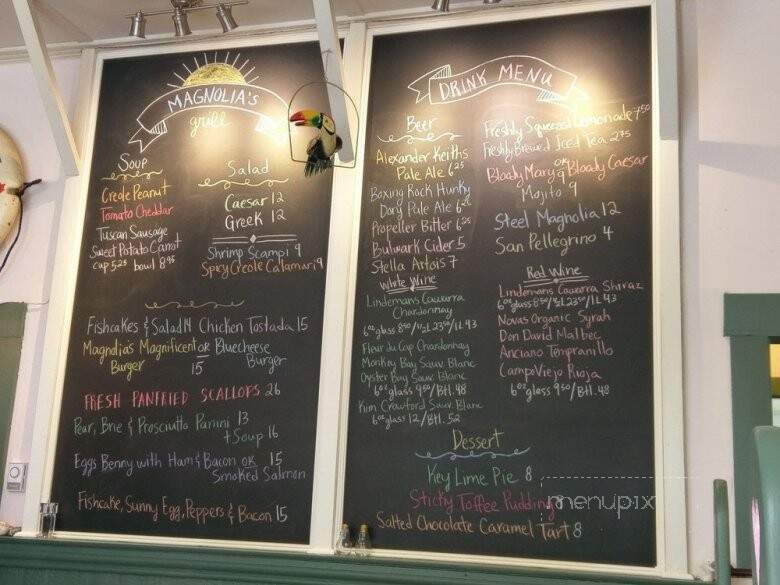 MAGNOLIA'S
grill
Soup
Creole Peanut
Tomato Cheddar
Tuscan Sausage
Sweet Potato Carrot
cup 5.25 bowl 8.95
Salad
Caesar 12
Greek 12
Shrimp Scampi 9
Spicy Creole Calamari 9
Fishcakes & Salad 14 Chicken Tostada 15
Magnolia's Magnificent OR Bluecheese
Burger 15 Burger
FRESH PANFRIED SCALLOPS 26
Pear, Brie & Prosciutto Panini 13
+ Soup 16
Eggs Benny with Ham & Bacon OR 15
Smoked Salmon
Fishcake, Sunny Egg, Peppers & Bacon 15
DRINK MENU
Beer
Alexander Keiths
Pale Ale 6.25
Boxing Rock Hunky
Dory Pale Ale 6.25
Propeller Bitter 6.25
Bulwark Cider 5
Stella Artois 7
White Wine
Lindemans Cawarra
Chardonnay
6oz glass 8.50/½L 23.50/1L 43
Fleur du Cap Chardonnay
Monkey Bay Sauv. Blanc
Oyster Bay Sauv. Blanc
6oz glass 9.50/Btl. 48
Kim Crawford Sauv. Blanc
6oz glass 12/Btl. 52
Freshly Squeezed Lemonade 7.50
Freshly Brewed Iced Tea 2.75
Bloody Mary OR Bloody Caesar
Mojito 9
Steel Magnolia 12
San Pellegrino 4
Red Wine
Lindemans Cawarra Shiraz
6oz glass 8.50/½L 23.50/1L 43
Novas Organic Syrah
Don David Malbec
Anciano Tempranillo
Campo Viejo Rioja
6oz glass 9.50/Btl. 48
Dessert
Key Lime Pie 8
Sticky Toffee Pudding
Salted Chocolate Caramel Tart 8
menupix